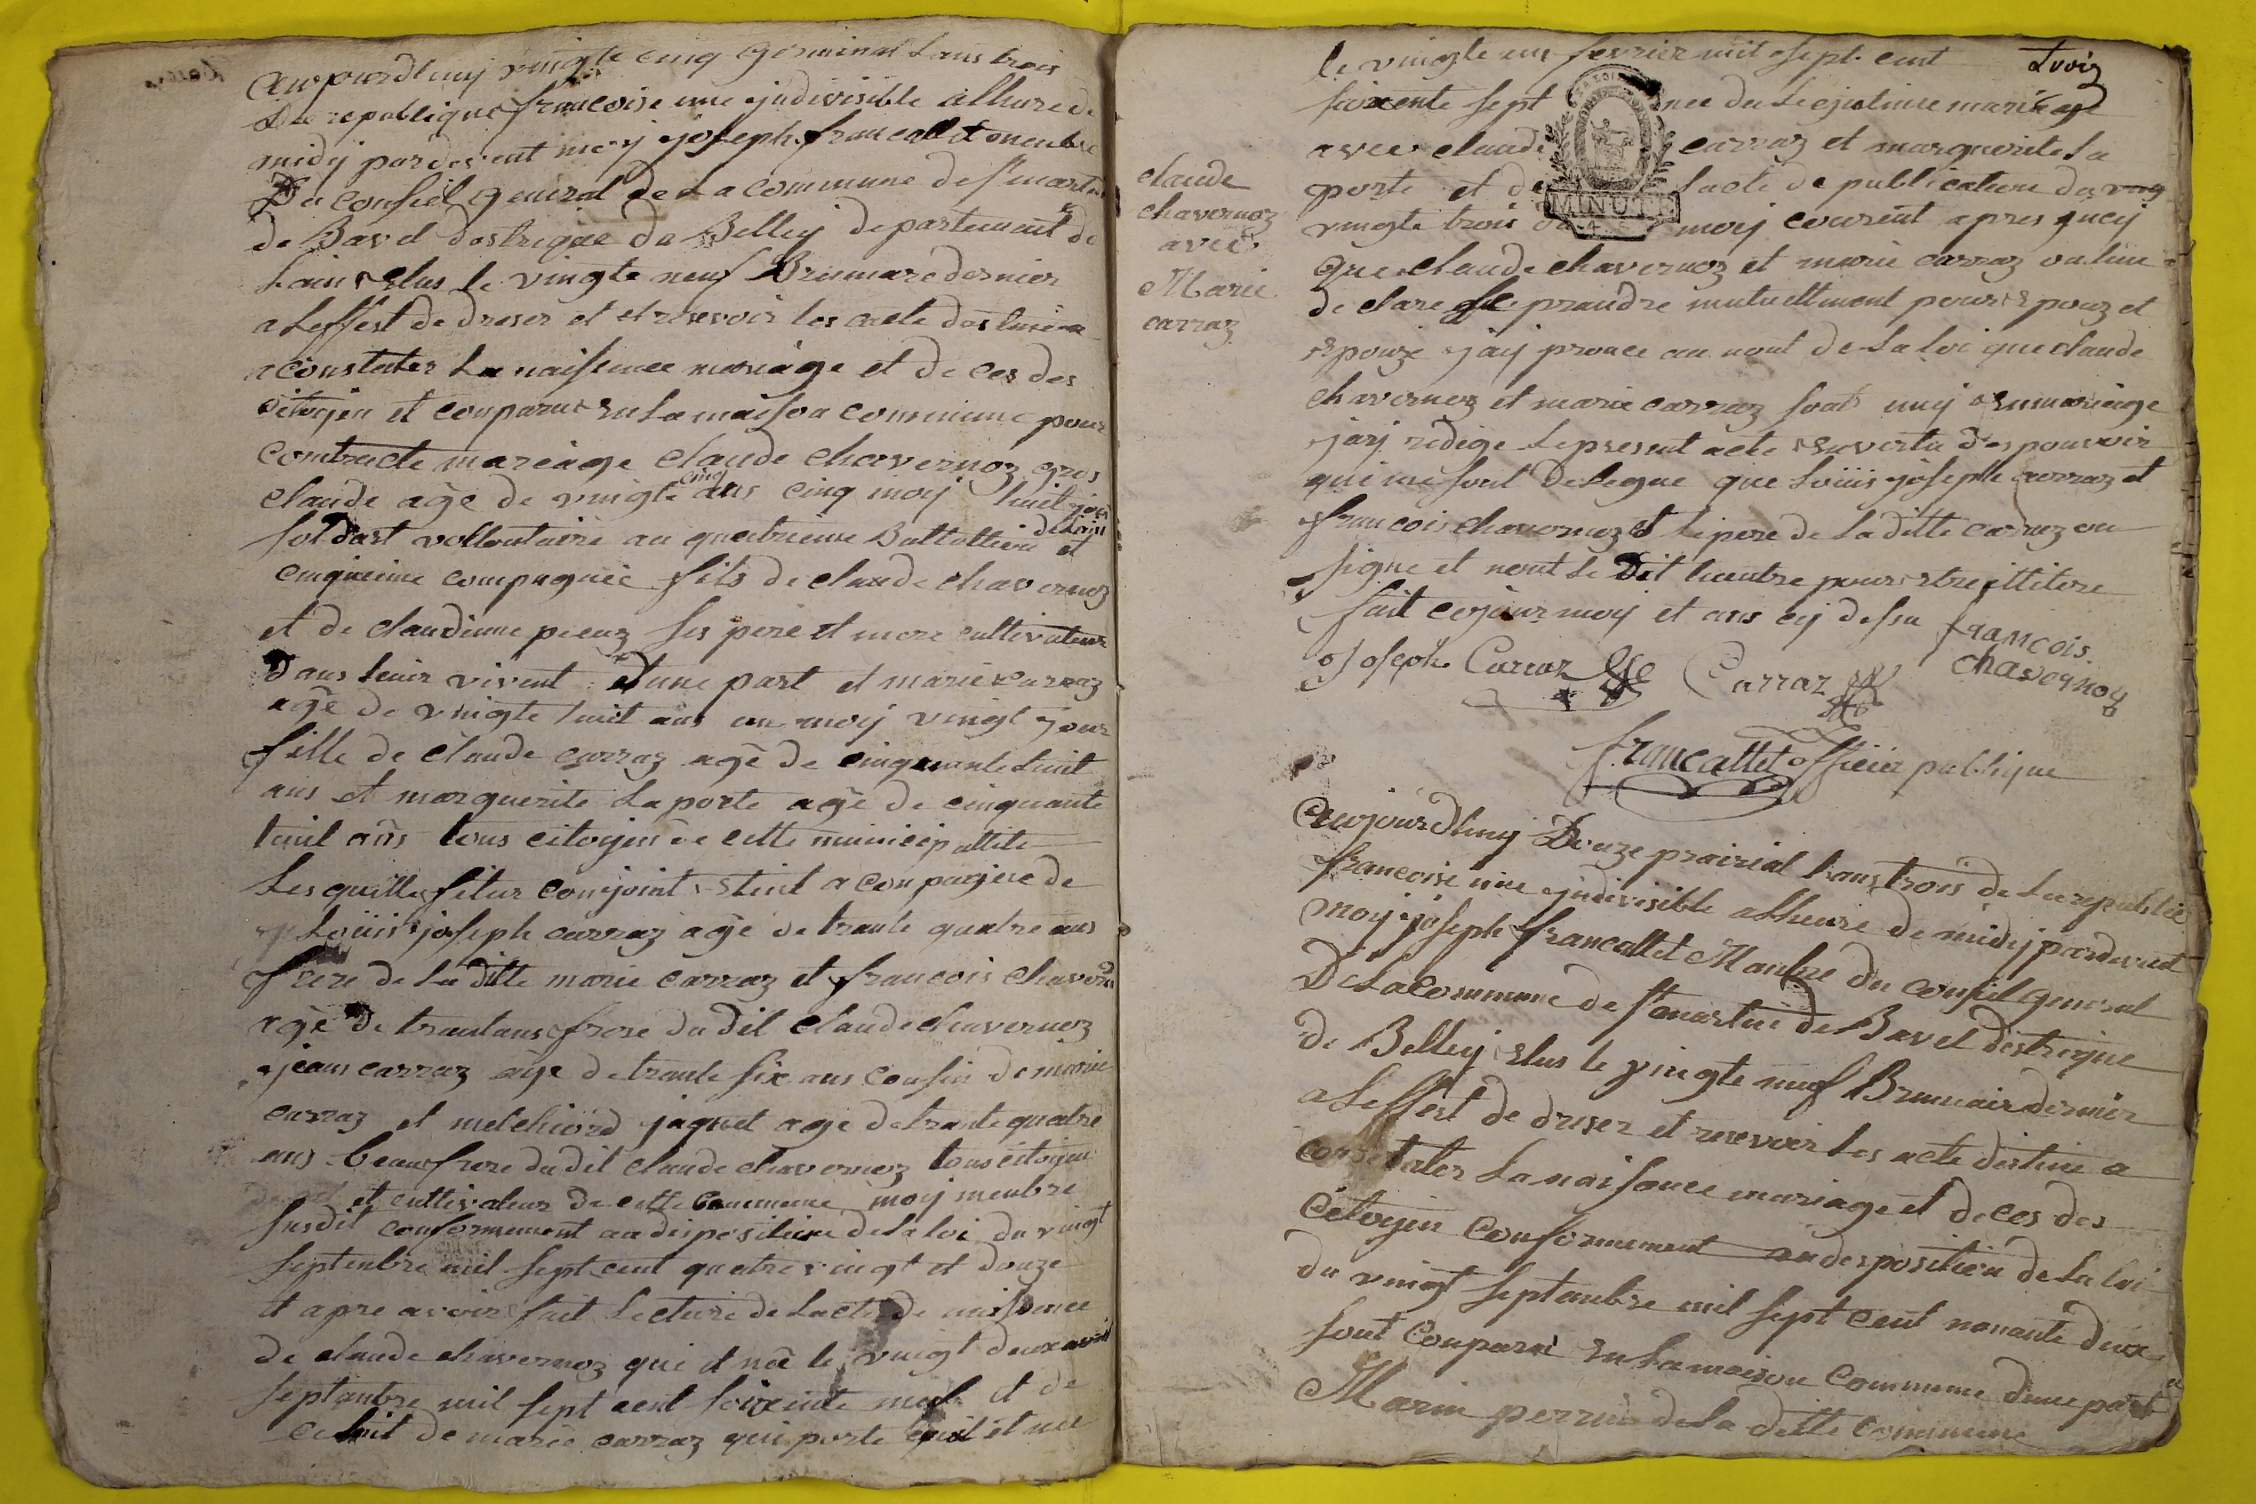 aujourdhuy vingte cinq Germinal Lans trois
De republique francoise une indivisible a lhure de
midy pardevent moy joseph francallet menbre
Du conseil general de La commune de st martin
de Bavel destrique de Belley departement de
Lain elus le vingte neuf Brumare dernier
a Leffest de dreser et et resevoir les acte destiné a
a constater La naissence mariage et de ces des
citoyen et conparus en La maison commune pour
contracte mareage claude chavernoz gros
claude age de vingte cinq ans cinq moy huit jour
soldast vollontaire au quatrieme Battallion de Lain et
cinquieme compagnée fils de claude chavernoz
et de claudinne peeuz ses pere et mere cultivateur
Dans leur vivent d'une part et marie carraz
agé de vingte huit ans un moy vingt jour
fille de claude carraz agé de cinquante huit
ans et marguerite La porte agé de cinquante
huit ans tous citoyen de cette municipallité
Lesquelle futur conjoint etent a conpagne de
Loüis joseph carraz agé de trante quatre ans
frere de La ditte marie carraz et francois chaverno
agé de trant ans frere du dit claude chavernoz
jean carraz age de trante six ans cousin de marie
carraz et melchiord jaquet age de trante quatre
ans beaufrere du dit claude chavernoz tous citoyen
et cultivateur de cette Commune moy menbre
susdit conformement au disposition de la loi du vingt
septenbre mil sept cent quatre vingt et douze
et apre avoir fait Lecture de Lacte de naissence
de claude chavernoz qui et née le vingt deux
septanbre mil sept cent soixente neuf et de
celuit de marie carraz qui porte quil et née
Troiz
le vingte un fevrier mil sept cent
soixente sept nee du Legistime mariage
avec claude carraz et marguerite La
porte et de Lacte de publication du
vingte trois du moy courent apres quey
que claude chavernoz et marie carraz on
de clare se prandre mutuellment pour epouz et
epouze jay pronce au nont de La loi que claude
chavernoz et marie carraz sont uny en mariage
jay redige Le present acte en vertu des pouvoir
qui me sont delegue que Loüis joseph carraz et
francois chavernoz et le pere de La ditte carraz on
signe et nont Le dit pour etre ittitere
fait ce jour moy et ans cy dessu
claude
chavernoz
avec
Marie
carraz
MINUTE
francois
chavernoz
Joseph Carraz Carraz
francallet officier publique
aujourdhuy Douze prairial Lans trois de La republic
francoise une indivisible a Lheure de midy pardevent
moy joseph francallet Manbre du conseil general
De La Commune de st martin de Bavel destrique
de Belley elus le vingte neuf Brumair dernier
a Leffest de dreser et resevoir Les acte destine a
constater La naisance mariage et de ces des
Citoyen Conformement au desposition de La loi
du vingt septanbre mil sept cent nonante deux
sont conparu en La maison commune dune part
Marin perrin de La ditte commune